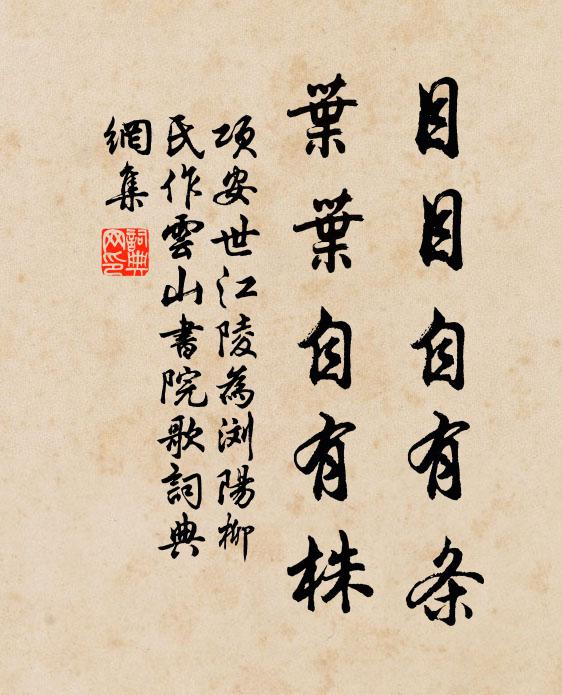 目目自有条
葉葉自有株
项安世江陵為浏陽柳
氏作雲山書院歌詞典
網集
詞典
网印